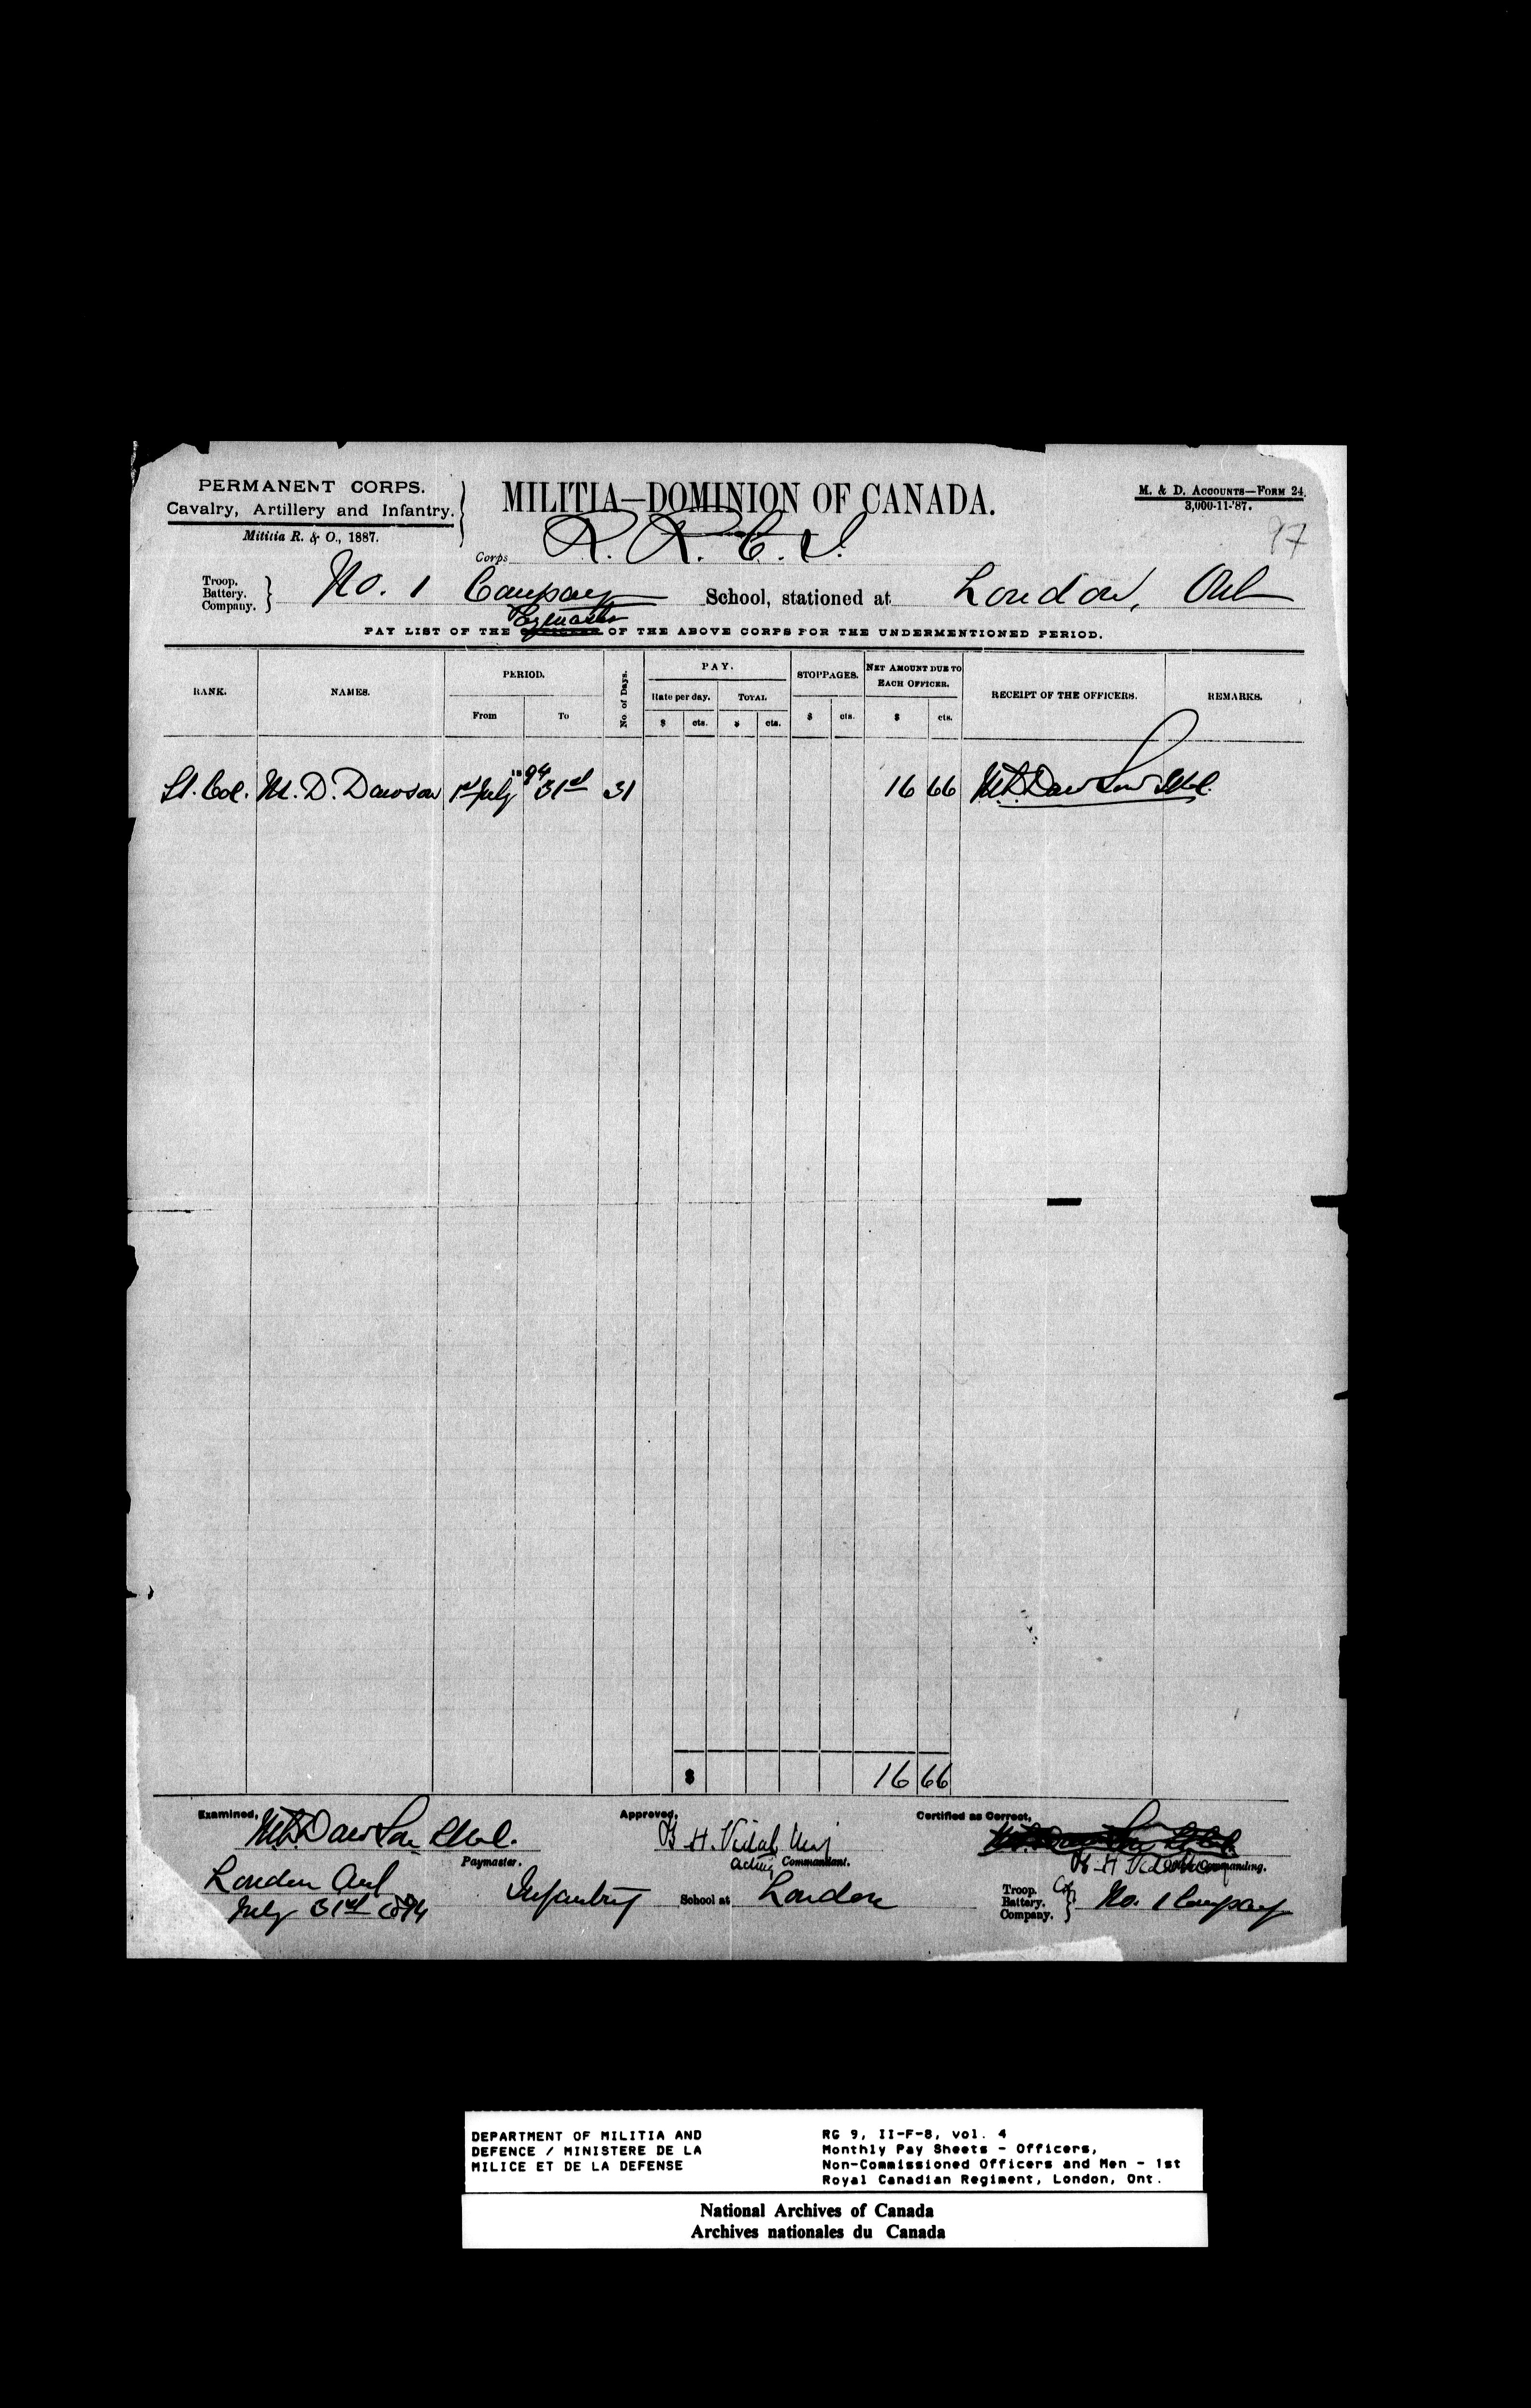 PERMANENT CORPS.
Cavalry, Artillery and Infantry.
Militia R. & O., 1887.
MILITIA—DOMINION OF CANADA.
M. & D. Accounts—Form 24.
3,000-11-'87.
97
Corps R. R. C. I.
Troop. Battery. Company. } No. 1 Company School, stationed at London, Ont
Paymaster
PAY LIST OF THE OF THE ABOVE CORPS FOR THE UNDERMENTIONED PERIOD.
RANK. NAMES. PERIOD. From To No. of Days. PAY. Rate per day. $ cts. TOTAL $ cts. STOPPAGES. $ cts. NET AMOUNT DUE TO EACH OFFICER. $ cts. RECEIPT OF THE OFFICERS. REMARKS.
Lt. Col. M. D. Dawson 1st July "94 31st 31 16 66 M.D. Dawson Lt Col.
$ 16 66
Examined, M.D. Dawson Lt Col. Paymaster.
Approved, B. H. Vidal Maj Acting Commandant.
Certified as Correct, B H Vidal Commanding.
London Ont
July 31st 1894
Infantry School at London
Troop. Battery. Company. } No. 1 Company
DEPARTMENT OF MILITIA AND
DEFENCE / MINISTERE DE LA
MILICE ET DE LA DEFENSE
RG 9, II-F-8, vol. 4
Monthly Pay Sheets - Officers,
Non-Commissioned Officers and Men - 1st
Royal Canadian Regiment, London, Ont.
National Archives of Canada
Archives nationales du Canada